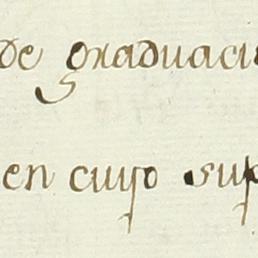 de graduaci
en cuyo sup